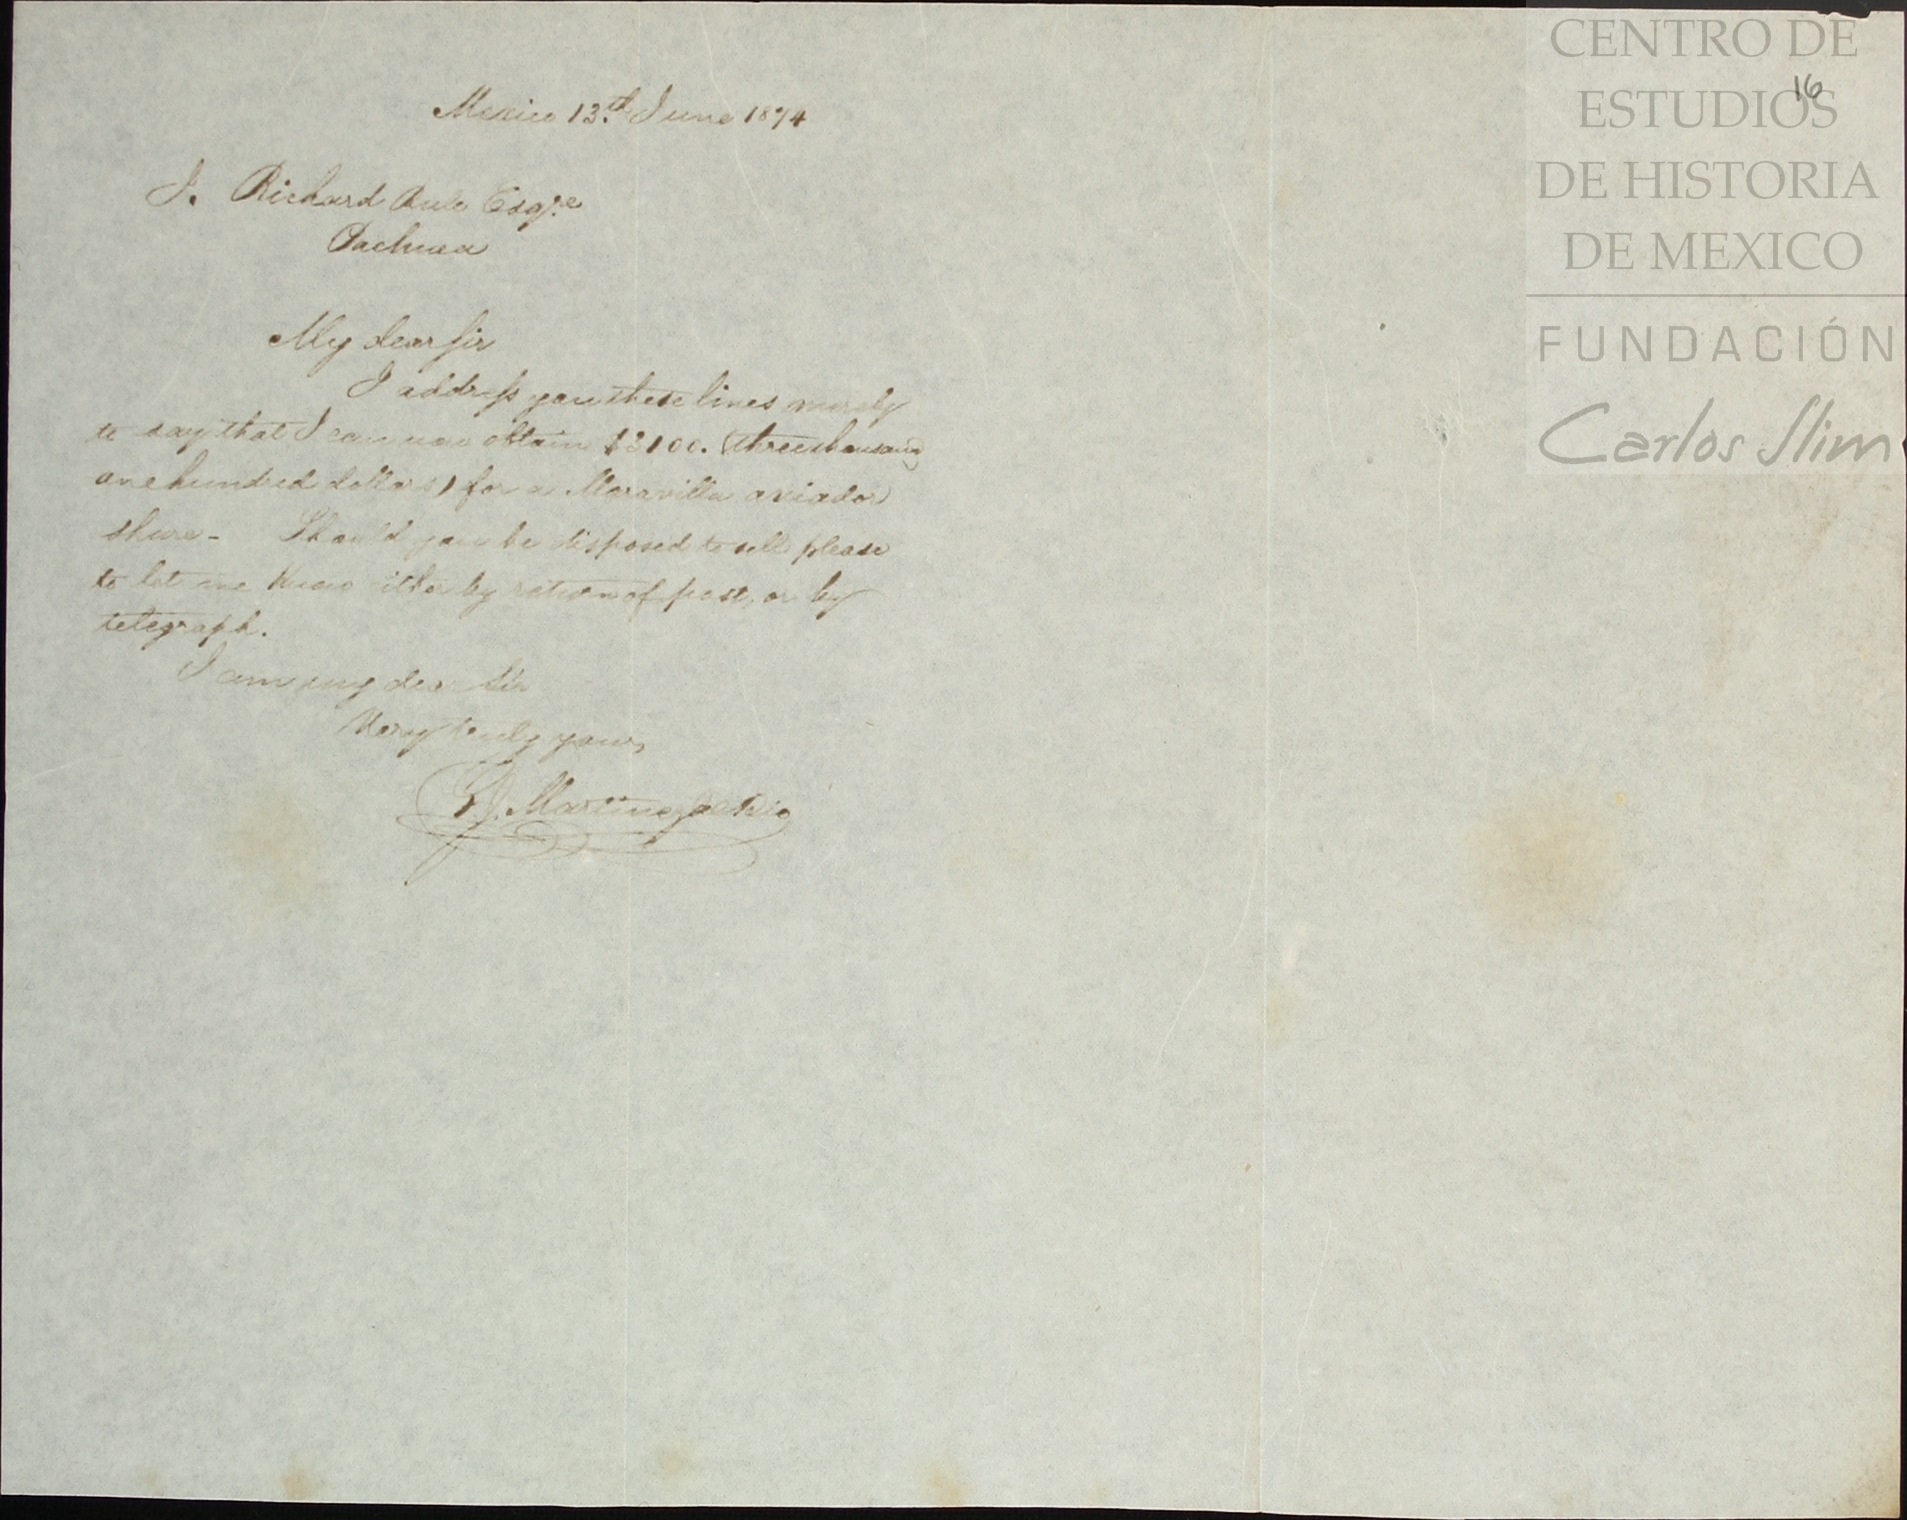 CENTRO DE
ESTUDIOS
DE HISTORIA
DE MEXICO
FUNDACIÓN
Carlos Slim
16
Mexico 13th June 1874
J. Richard Rule Esqre
Pachuca
My dear Sir
I address you these lines merely
to say that I can now obtain $3100. (three thousand
one hundred dollars) for a Maravilla aviador
share - Should you be disposed to sell please
to let me know either by return of post, or by
telegraph.
I am my dear Sir
Very truly yours,
P. Martinez del Rio